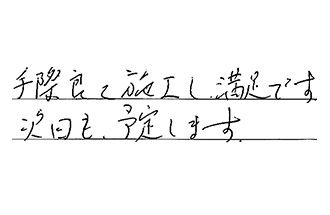 手際良く施工し、満足です
次回も、予定します。